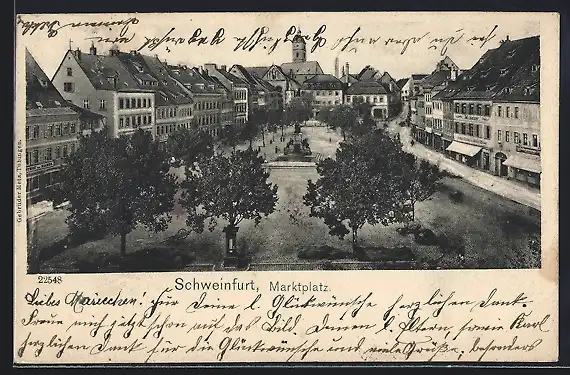 Gebrüder Metz, Tübingen.
22548
Schweinfurt, Marktplatz.
Liebes Mariechen! Für Deine l. Glückwünsche herzlichen Dank.
Freue mich jetzt schon auf das Bild. Deinen l. Eltern, sowie Karl
herzlichen Dank für die Glückwünsche und viele Grüße, besonders